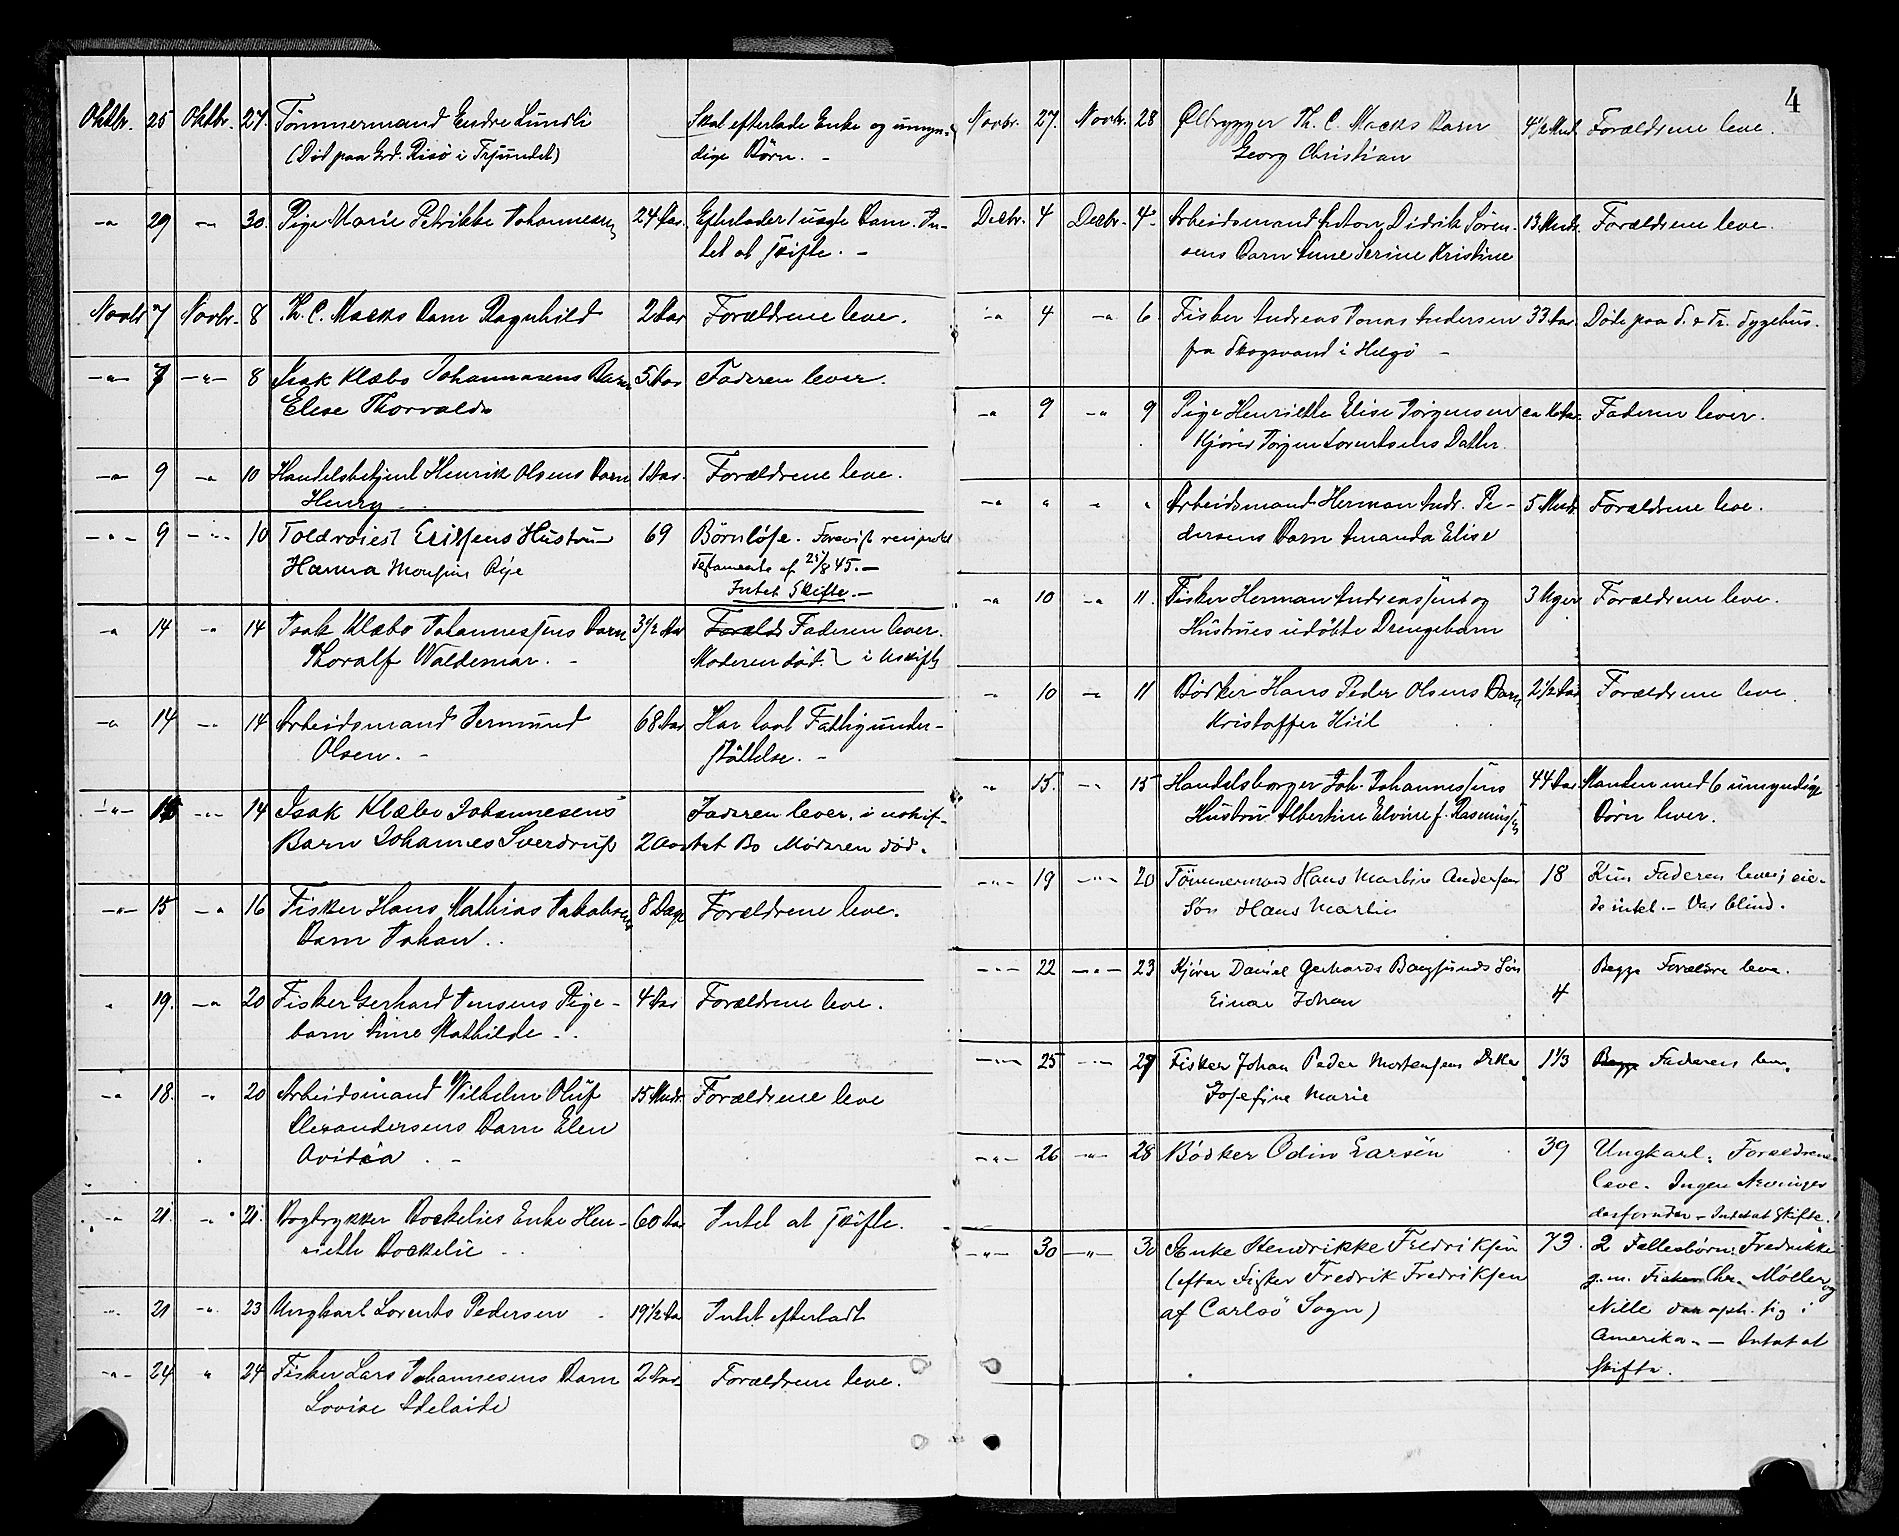 Oktbr. 25 Oktbr. 27. Tømmermand Endre Lundli Skal efterlade Enke og umyn-
(Død paa Grd. Risø i Trjundet) dige Børn. -
-"- 29 -"- 30. Pige Marie Petrikke Johannesen 24 Aar. Efterlader 1 uægte Barn. In-
tet at skifte. -
Novbr 7 Novbr. 8 Th. C. Macks Barn Ragnhild 2 Aar Forældrene leve.
-"- 7 -"- 8 Isak Klæbo Johannesens Barn 5 Aar Faderen lever.
Elise Thorvalda
-"- 9 -"- 10 Handelsbetjent Henrik Olsens Barn 1 Aar. Forældrene leve.
Henry -
-"- 9 -"- 10 Toldroiest Hustru 69 Børnløse. Forevist reciprokt
Hanna Monsine Rye Testamente af 25/8 45. -
Intet Skifte. -
-"- 14 -"- 14 Isak Klæbo Johannessens Barn 3 1/2 Aar Forælds Faderen lever.
Thoralf Waldemar. - Moderen død. i Uskifte
-"- 14 -"- 14 Arbeidsmand Vermund 68 Aar Har havt Fattigunder-
Olsen. - støttelse. -
-"- 15 -"- 14 Isak Klæbo Johannesens Faderen lever, i uskif-
Barn Johannes Sverdrup 2 Aar tet Bo Moderen død.
-"- 15 -"- 16 Fisker Hans Mathias Jakobsens 8 Dage Forældrene leve.
Barn Johan. .
" 19. -"- 20 Fisker Gerhard Jensens Pige- 4 Aar Forældrene leve.
barn Anne Mathilde -
-"- 18. -"- 20 Arbeidsmand Wilhelm Oluf 15 Mndr. Forældrene leve
Alexandersens Barn Elen
Avidia . -
-"- 21. -"- 21. Bogtrykker Bockelies Enke Hen- 60 Aar Intet at skifte.
riette Bockelie -
-"- 21 -"- 23 Ungkarl Lorents Pedersen 19 1/2 Aar Intet efterladt
-"- 24 " 24 Fisker Lars Johannesens Barn 2 Aar Forældrene leve.
Lovise Adelaide
4
Novbr. 27. Novbr. 28 Ølbrygger Th. C. Macks Barn 4 1/2 Mnd. Forældrene leve.
Georg Christian
Decbr. 4 Decbr. 4 Arbeidsmand Anton Didrik Søren- 13 Mndr. Forældrene leve.
sens Barn Anne Serine Kristine
-"- 4 -"- 6. Fisker Andreas Jonas Andersen 33 Aar. Døde paa S. & Tr. Sygehus.
fra Skogsvand i Helgø -
-"- 9 -"- 9 Pige Henriette Elise Jørgensen ca Aar. Faderen lever.
Kjører Jørgen Lorentsens Datter.
-"- " " " Arbeidsmand Herman Andr. Pe- 5 Mndr. Forældrene leve.
dersens Barn Amanda Elise
-"- 10 -"- 11. Fisker Herman Andreassen og 3 Uger Forældrene leve.
Hustrues udøbte Drengebarn
-"- 10 -"- 11 Bødker Hans Peder Olsens Barn 2 1/2 Aar Forældrene leve.
Kristoffer Hiil
-"- 15. -"- 15 Handelsborger Joh. Johannessens 44 Aar Manden med 6 umyndige
Hustru Albertine Elvine f. Rasmussen Børn lever.
-"- 19 -"- 20 Tømmermand Hans Martin Andersens 18 Kun Faderen lever; eie-
Søn Hans Martin de intet. - Var blind.
-"- 22 -"- 23 Kjører Daniel Gerhards Søn 4 Begge Forældre leve.
Einar Johan
-"- 25 -"- 27 Fisker Johan Peder Mortensens Dtter 1 1/3 Begge Faderen lever.
Josefine Marie
-"- 26 -"- 28 Bødker Odin Larsen 39 Ungkarl. Forældrene
leve. Ingen Arvinger
desforuden - Intet at skifte.
-"- 30 -"- 30 Enke Hendrikke Fredriksen 73. 2 Fællesbørn: Fredrikke
(efter Fisker Fredrik Fredriksen g. m. Fisker Chr. Møller og
af Carlsø Sogn) Nille der oph. sig i
Amerika. - Intet at
skifte.